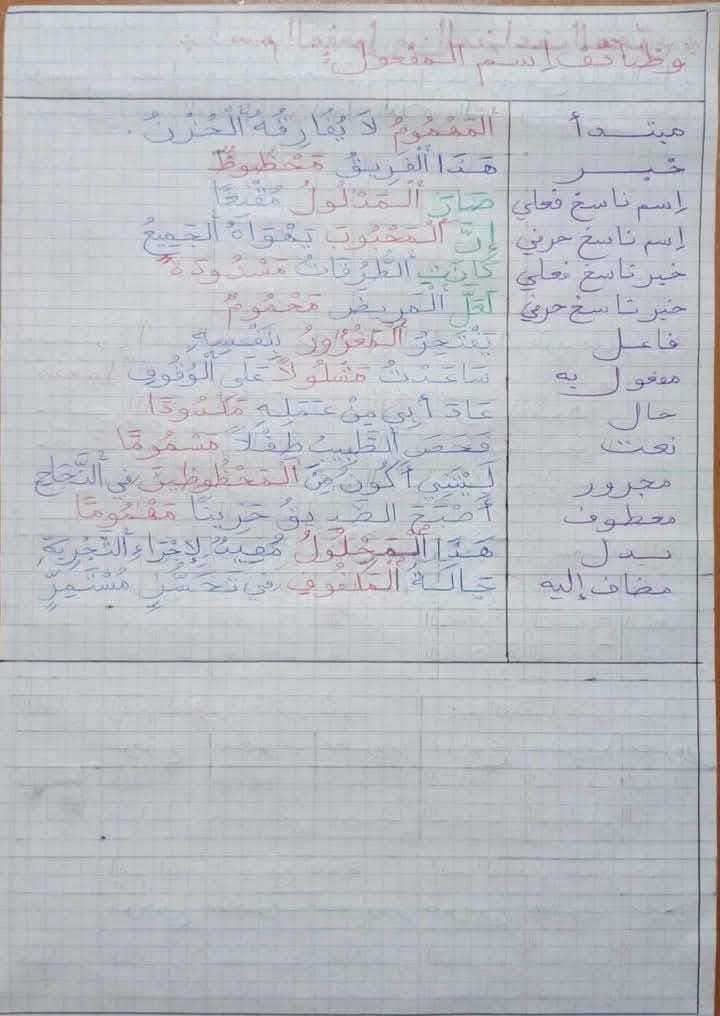 وظائف اسم المفعول:
مبتدأ اَلْمَهْمُومُ لاَ يُفَارِقُهُ اَلْحُزْنُ.
خبر هَذَا اَلْفَرِيقُ مَحْظُوظٌ
إسم ناسخ فعلي صَارَ اَلْمَدْلُولُ مُقْنِعًا
إسم ناسخ حرفي إِنَّ اَلْمَحْبُوبَ يَهْوَاهُ اَلْجَمِيعُ
خبر ناسخ فعلي كَانَتِ اَلطُّرُقَاتُ مَسْدُودَةً
خبر ناسخ حرفي لَعَلَّ اَلْمَرِيضَ مَحْمُومٌ
فاعل يَفْتَخِرُ اَلْمَغْرُورُ بِنَفْسِهِ
مفعول به سَاعَدْتُ مَشْلُولاً عَلَى اَلْوُقُوفِ
حال عَادَ أَبِي مِنْ عَمَلِهِ مَكْدُودًا
نعت فَحَصَ اَلطَّبِيبُ طِفْلاً مَسْمُومًا
مجرور لَيْتَنِي أَكُونُ مِنَ اَلْمَحْظُوظِينَ فِي اَلنَّجَاحِ
معطوف أَصْبَحَ اَلصَّدِيقُ حَزِينًا مَهْمُومًا
بدل هَذَا اَلْمَحْلُولُ مُفِيدٌ لِإِجْرَاءِ اَلتَّجْرِبَةِ
مضاف إليه حَالَةُ اَلْمَلْهُوفِ فِي تَحَسُّنٍ مُسْتَمِرٍّ